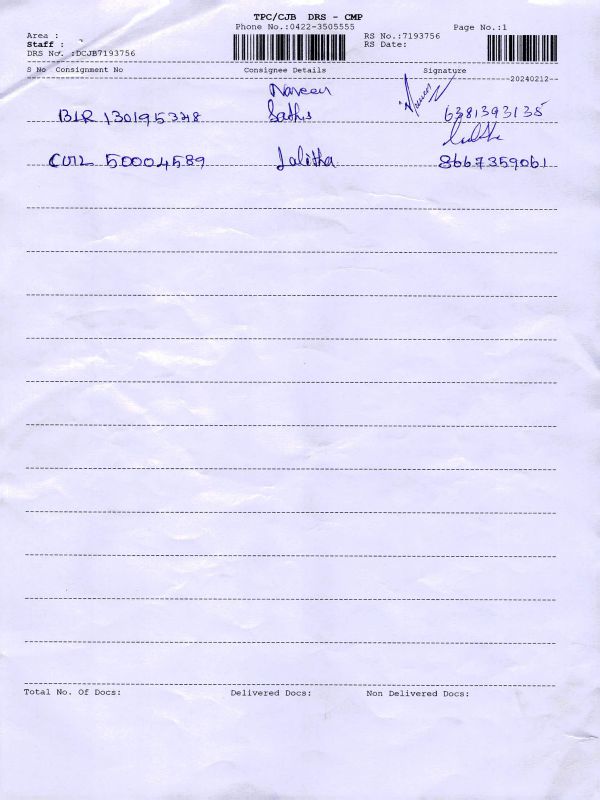 TPC/CJB DRS - CMP
Phone No.:0422-3505555 Page No.:1
Area : RS No.:7193756
Staff : RS Date:
DRS No. :DCJB7193756
S No Consignment No Consignee Details Signature
20240212
Naveen
BLR 130195378 Sathis Naveen 6381393135
50004589 Lalitha 8667359061
Total No. Of Docs: Delivered Docs: Non Delivered Docs: